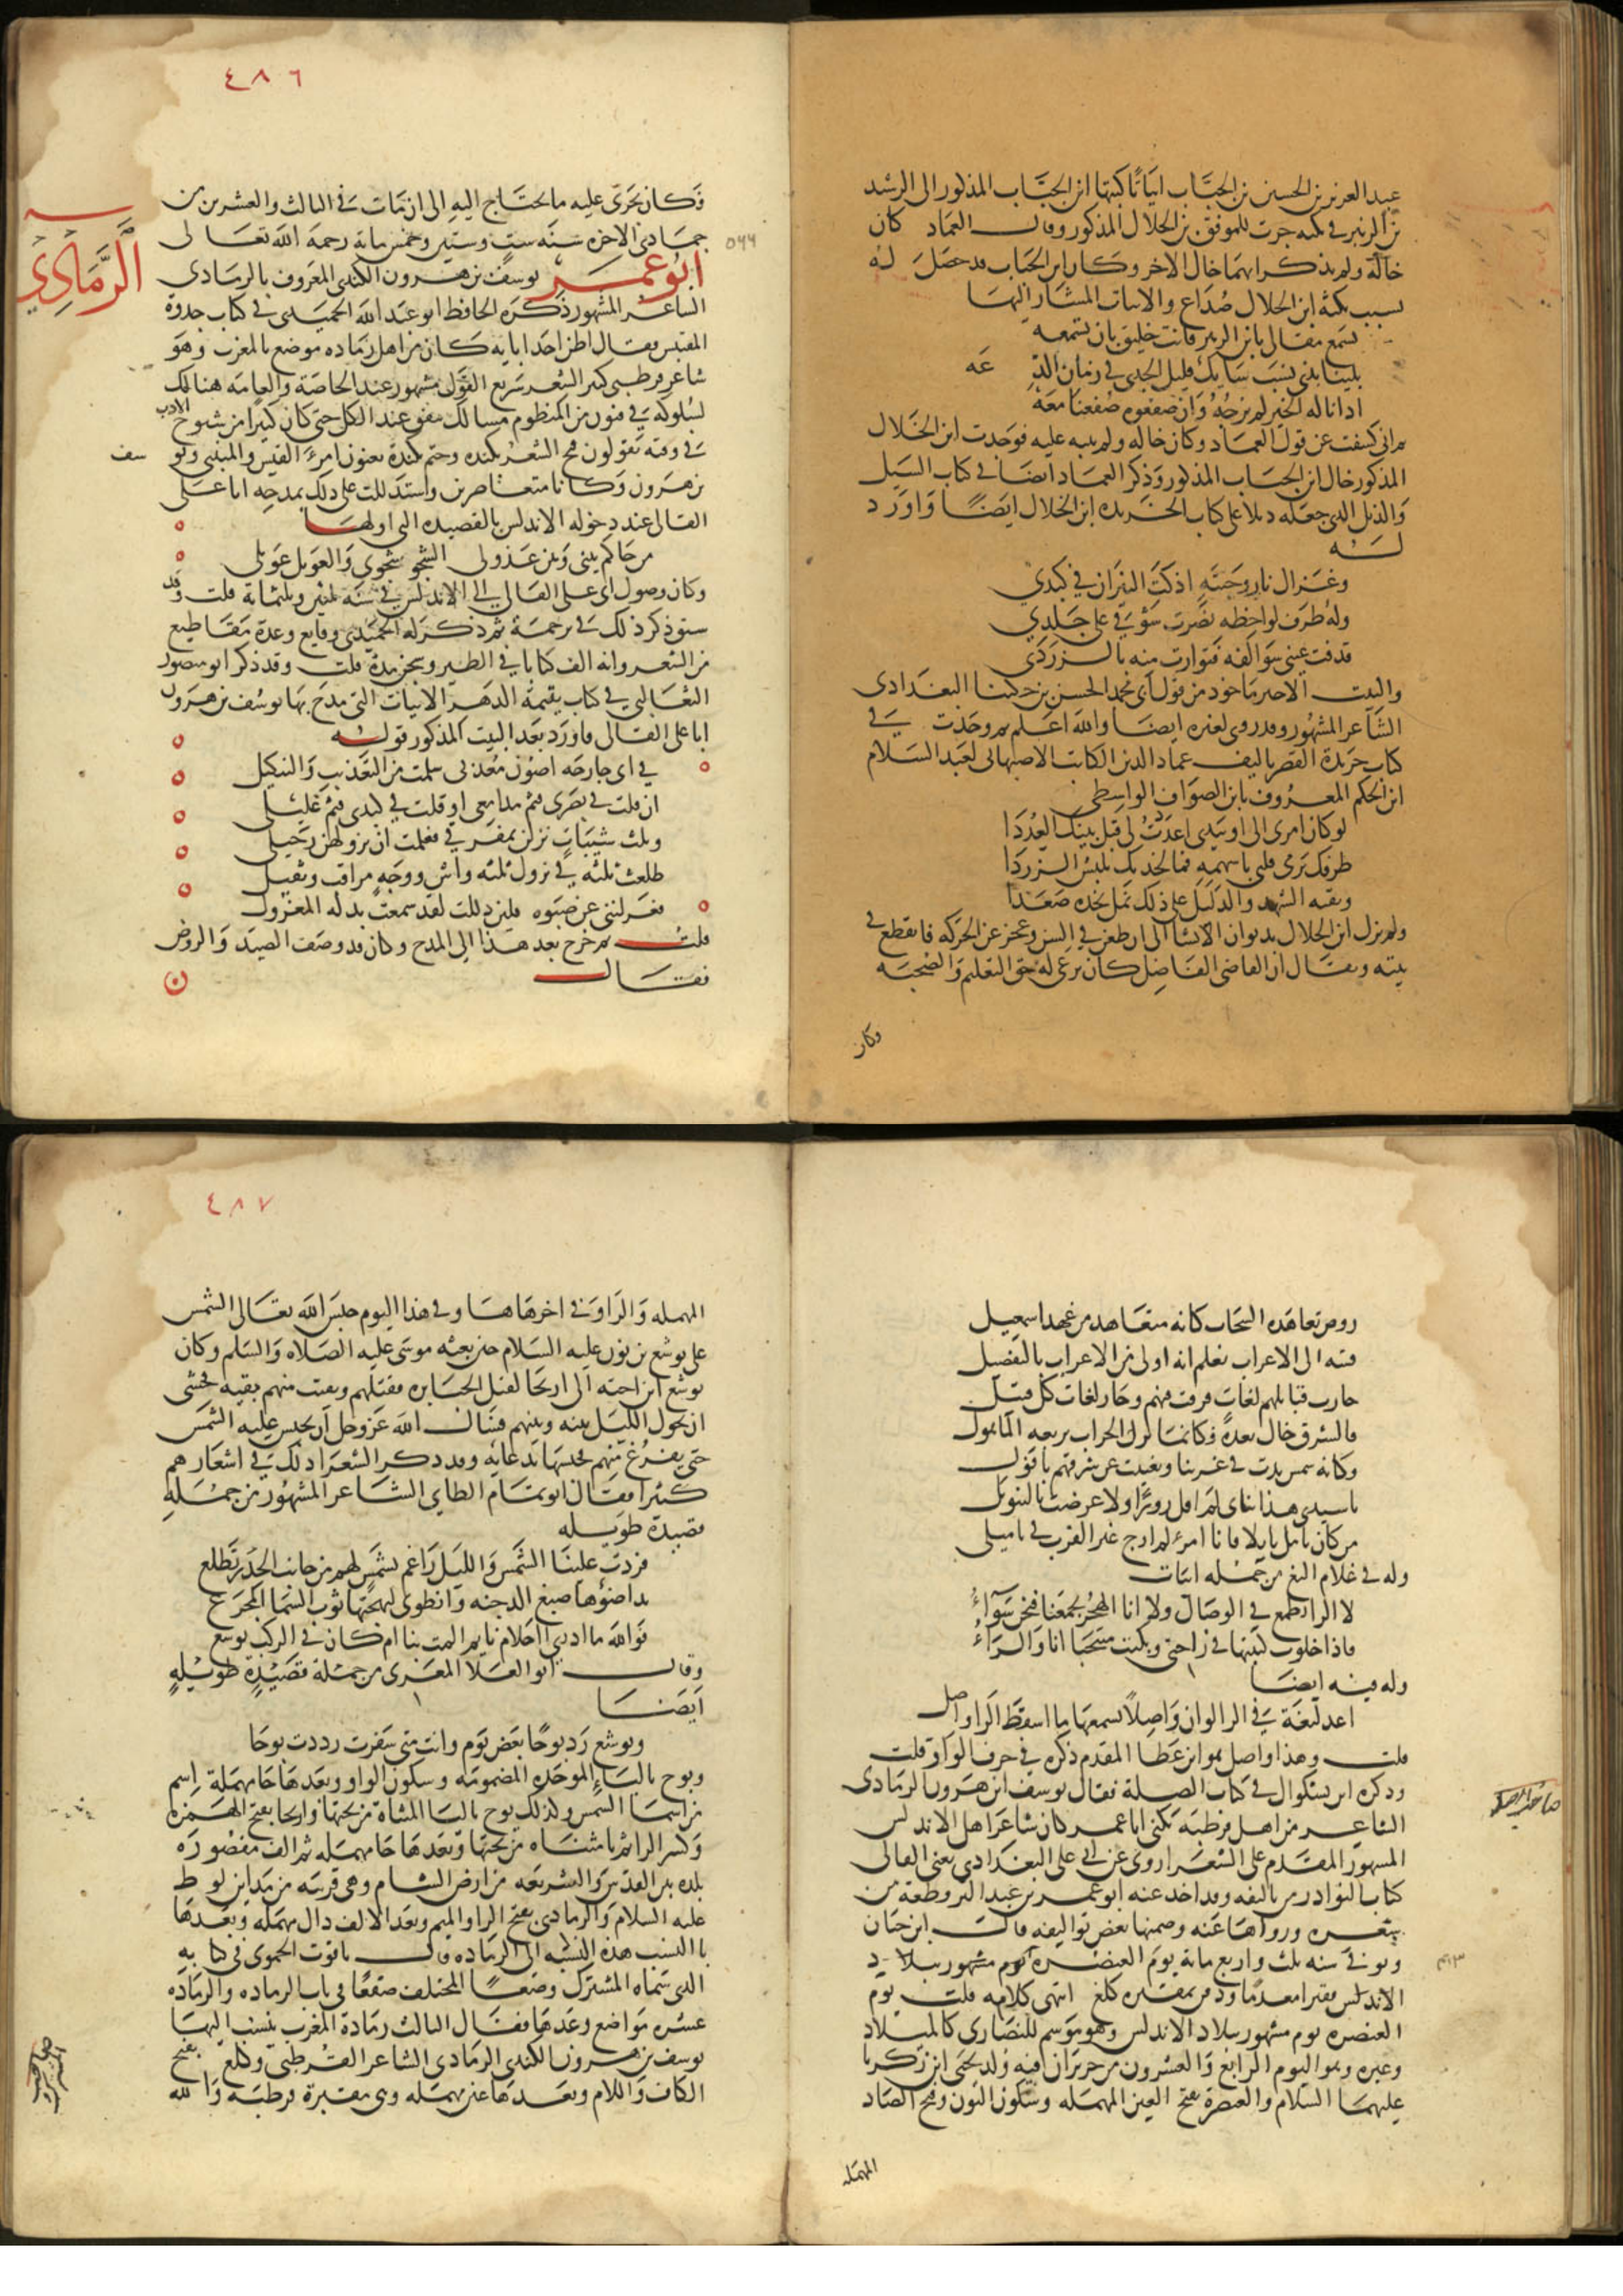 عبد العزيز بن الحسين بن الجباب ابياتا كتبها ابن الجباب المذكور الى الرشيد
بن الزبير في نكبة جرت للموفق بن الخلال المذكور وقال العماد كان
خاله ولم يذكر ايهما خال الاخر وكان ابن الجباب قد حصل له
بسبب نكبة ابن الخلال صداع والابيات المشار اليها
تسمع مقالي يا ابن الزبير فانت خليق بان تسمعه
بلينا بذي نسب شابك قليل الجدى في زمان الدعه
اذا ناله الخير لم نرجه وان صفعوه صفعنا معه
ثم اني كشفت عن قول العماد وكان خاله ولم ينبه عليه فوجدت ابن الخلال
المذكور خال ابن الجباب المذكور وذكر العماد ايضا في كتاب السيل
والذيل الذي جعله ذيلا على كتاب الخريده ابن الخلال ايضا واورد
له
وغزال نار وجنته اذكت النيران في كبدي
وله طرف لواحظه نصرت شوقي على جلدي
قذفت عيني سوالفه فتوارت منه بالزرد
والبيت الاخير ماخوذ من قول ابي محمد الحسن بن حكينا البغدادى
الشاعر المشهور وقد روي لغيره ايضا والله اعلم ثم وجدت في
كتاب خريدة القصر تاليف عماد الدين الكاتب الاصبهاني لعبد السلام
ابن الحكم المعروف بابن الصواف الواسطي
لو كان امرى الى او بيدي اعددت لى قبل بينك العددا
طرفك يرمى قلبى باسهمه فما لخديك تلبس الزردا
وريقه الشهد والدليل على ذلك نمل بخده صعدا
ولم يزل ابن الخلال بديوان الانشا الى ان طعن في السن وعجز عن الحركه فانقطع في
بيته ويقال ان القاضي الفاضل كان يرعى له حق التعليم والصحبه
وكان
٤٨٦
فكان يجرى عليه ما يحتاج اليه الى ان مات في الثالث والعشرين من
جمادى الاخره سنه ست وستين وخمس مائة رحمه الله تعالى
٥٦٦
الرمادي
ابو عمر يوسف بن هرون الكندى المعروف بالرمادي
الشاعر المشهور ذكره الحافظ ابو عبد الله الحميدى في كتاب جذوة
المقتبس فقال اظن احد ابايه كان من اهل رماده موضع بالمغرب وهو
شاعر قرطبي كثير الشعر سريع القول مشهور عند الخاصة والعامه هنالك
لسلوكه في فنون من المنظوم مسالك نفق عند الكل حتى كان كثيرا من شيوخ الادب
في وقته يقولون فتح الشعر بكنده وختم بكندة يعنون امرئ القيس والمتنبي ويوسف
بن هرون وكانا متعاصرين واستدللت على ذلك بمدحه ابا على
القالى عند دخوله الاندلس بالقصيده التي اولها
من حاكم بيني وبين عذولى الشجو شجوى والعويل عويلى
وكان وصول ابى على القالي الى الاندلس في سنه ثلثين وثلثمائة قلت وقد
سبق ذكر ذلك في ترجمة ثم ذكر له الحميدى وقايع وعدة مقاطيع
من الشعر وانه الف كتابا في الطير وسجن مدة قلت وقد ذكر ابو منصور
الثعالبي في كتاب يتيمة الدهر الابيات التي مدح بها يوسف بن هرون
ابا على القالى فاورد بعد البيت المذكور قوله
في اي جارحه اصون معذبى سلمت من التعذيب والتنكيل
ان قلت في بصرى فثم مدامعى او قلت في كبدى فثم غليلى
وثلث شيبات نزلن بمفرقي فعلمت ان نزولهن رحيلى
طلعت ثلثه في نزول ثلثه واش ووجه مراقب وثقيل
فعزلننى عن صبوه فلين ذللت لقد سمعت بذله المعزول
قلت ثم خرج بعد هذا الى المدح وكان قد وصف الصيد والروض
فقال
روض تعاهده السحاب كانه متعاهد من عهد اسمعيل
قسه الى الاعراب تعلم انه اولى من الاعراب بالتفضيل
حازت قبايلهم لغات فرقت فيهم وحاز لغات كل قبيل
فالشرق خال بعده فكانما نزل الخراب بربعه الماهول
وكانه شمس بدت في غربنا وتغيبت عن شرقهم بافول
يا سيدي هذا ثناى لم اقل زورا ولا عرضت بالتنويل
من كان يامل نايلا فانا امرء لم ارج غير القرب في تاميلى
وله في غلام الثغ من جمله ابيات
لا الرا تطمع في الوصال ولا انا الهجر يجمعنا فنحن سواء
فاذا خلوت كتبتها في راحتى وبكيت منتحبا انا والراء
وله فيه ايضا
اعد لثغة في الرا لو ان واصلا تسمعها ما اسقط الراء واصل
قلت وهذا واصل هو ابن عطا المقدم ذكره في حرف الواو قلت
وذكره ابن بشكوال في كتاب الصلة فقال يوسف ابن هرون الرمادى
الشاعر من اهل قرطبه يكنى ابا عمر كان شاعر اهل الاندلس
المشهور المقدم على الشعرا روى عن ابى على البغدادى يعنى القالى
كتاب النوادر من تاليفه وقد اخذ عنه ابو عمر بن عبد البر قطعة من
شعره ورواها عنه وضمنها بعض تواليفه قال ابن حيان
وتوفي سنه ثلث واربع مائة يوم العنصره يوم مشهور ببلاد
الاندلس فقيرا معدما ودفن بمقبره كلع انتهى كلامه قلت يوم
العنصره يوم مشهور ببلاد الاندلس وهو موسم للنصارى كالميلاد
وغيره وهو اليوم الرابع والعشرون من حزيران فيه ولد يحيى ابن زكريا
عليهما السلام والعنصرة بفتح العين المهمله وسكون النون وفتح الصاد
المهمله
٤٨٧
المهمله والراء وفى اخرها ها وفي هذا اليوم حبس الله تعالى الشمس
على يوشع بن نون عليه السلام حين بعثه موسى عليه الصلاه والسلم وكان
يوشع ابن اخته الى اريحا لقتل الجبابره فقتلهم وبقيت منهم بقيه فخشى
ان يحول الليل بينه وبينهم فسال الله عز وجل ان يحبس عليه الشمس
حتى يفرغ منهم فحبسها بدعايه وقد ذكر الشعرا ذلك في اشعارهم
كثيرا فقال ابو تمام الطاى الشاعر المشهور من جملة
قصيدة طويله
فردت علينا الشمس والليل راغم بشمس لهم من جانب الخدر تطلع
بدا ضوءها صبغ الدجنه وانطوى لبهجتها ثوب السما المجزع
فوالله ما ادرى ااحلام نايم المت بنا ام كان في الركب يوشع
وقال ابو العلا المعرى من جملة قصيدة طويلة
ايضا
ويوشع رد يوحا بعض يوم وانت متى سفرت رددت يوحا
وبوح بالباء الموحده المضمومه وسكون الواو وبعدها حا مهملة اسم
من اسما الشمس وكذلك يوح باليا المثناة من تحتها واريحا بفتح الهمزه
وكسر الرا ثم يا مثناه من تحتها وبعدها حا مهمله ثم الف مقصوره
عليه السلام والرمادي بفتح الرا والميم وبعد الالف دال مهمله وبعدها
يا النسب هذه النسبه الى الرماده قال ياقوت الحموى في كتابه
الذى سماه المشترك وضعا المختلف صقعا في باب الرماده والرماده
عشره مواضع وعدها فقال الثالث رمادة المغرب ينسب اليها
يوسف بن هرون الكندى الرمادى الشاعر القرطبي وكلع بفتح
الكاف واللام وبعدها عين مهمله وهى مقبرة قرطبه والله